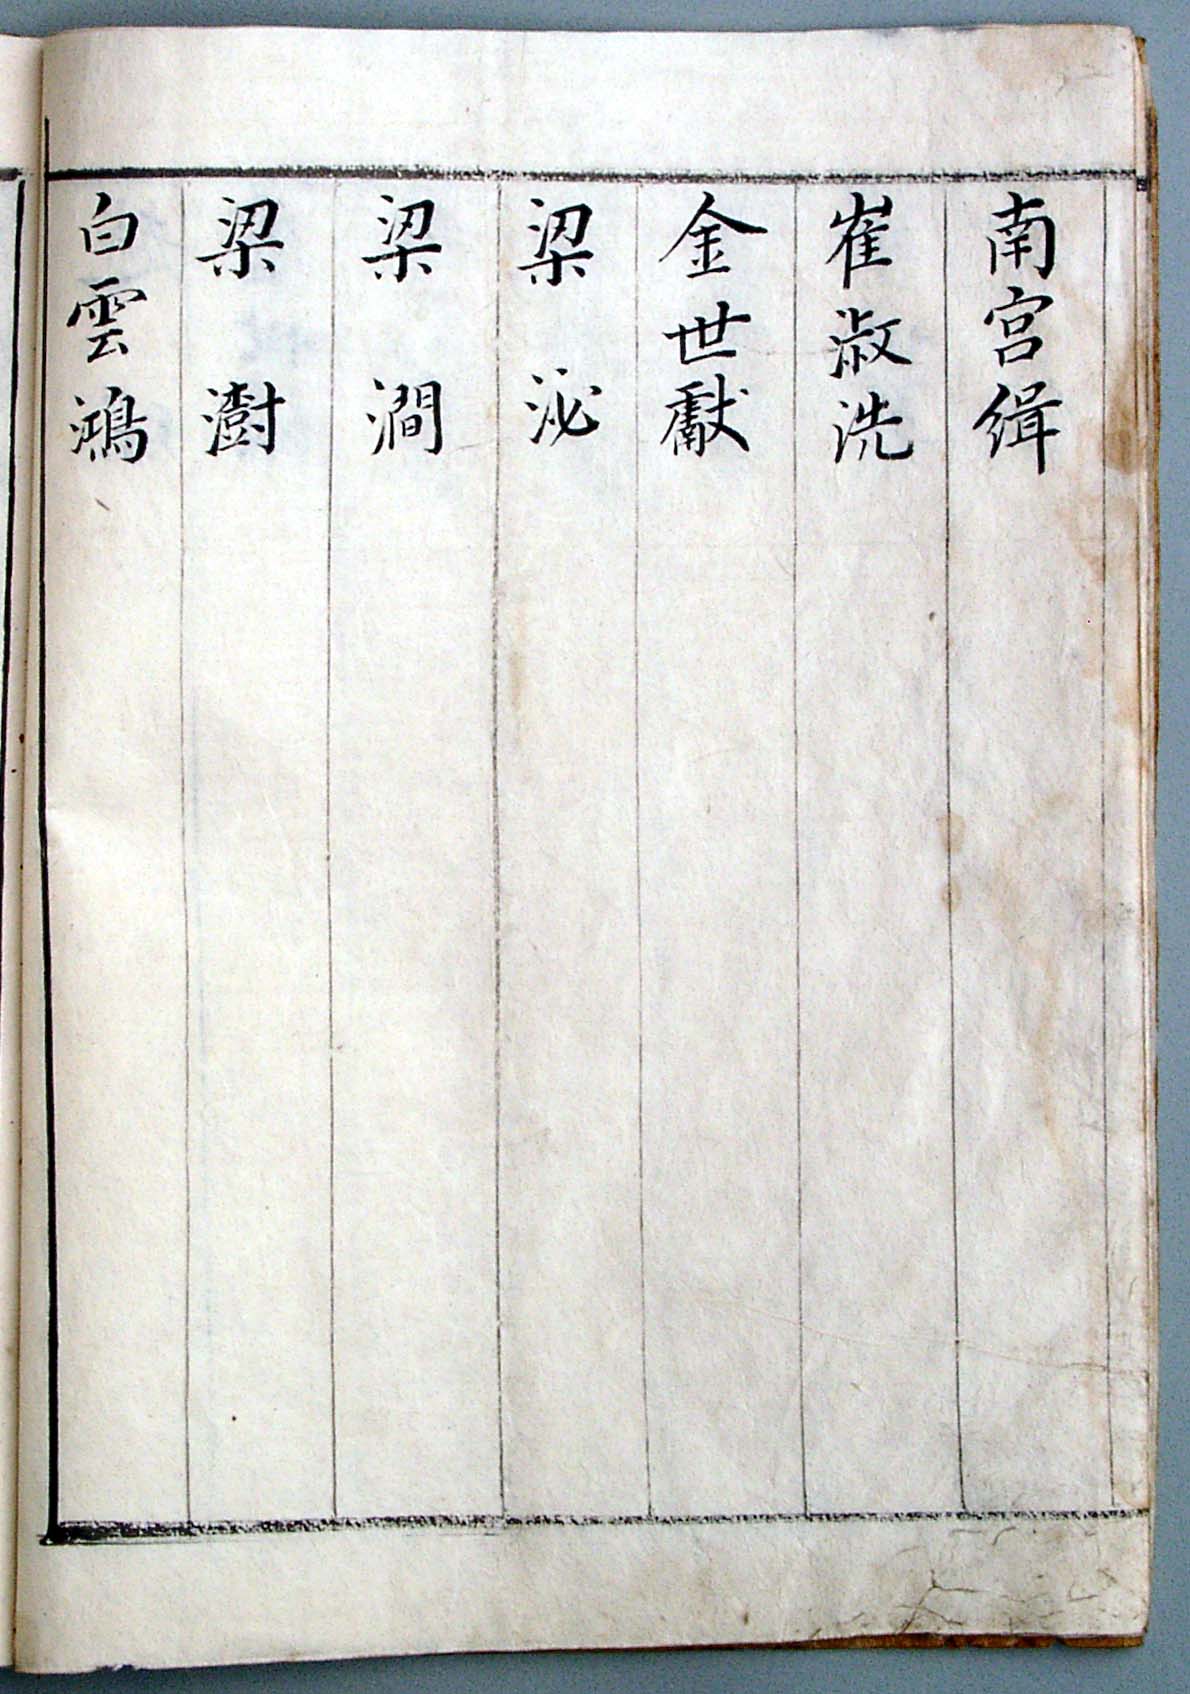 南宮緝
崔淑洗
金世獻
梁泌
梁澗
梁澍
白雲鴻